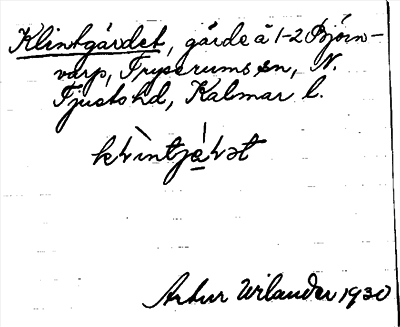 Klintgärdet, gärde ä 1-2 Björn-
varp, Fryserums sn, N.
Tjusts hd, Kalmar l.
Artur Wilander 1930